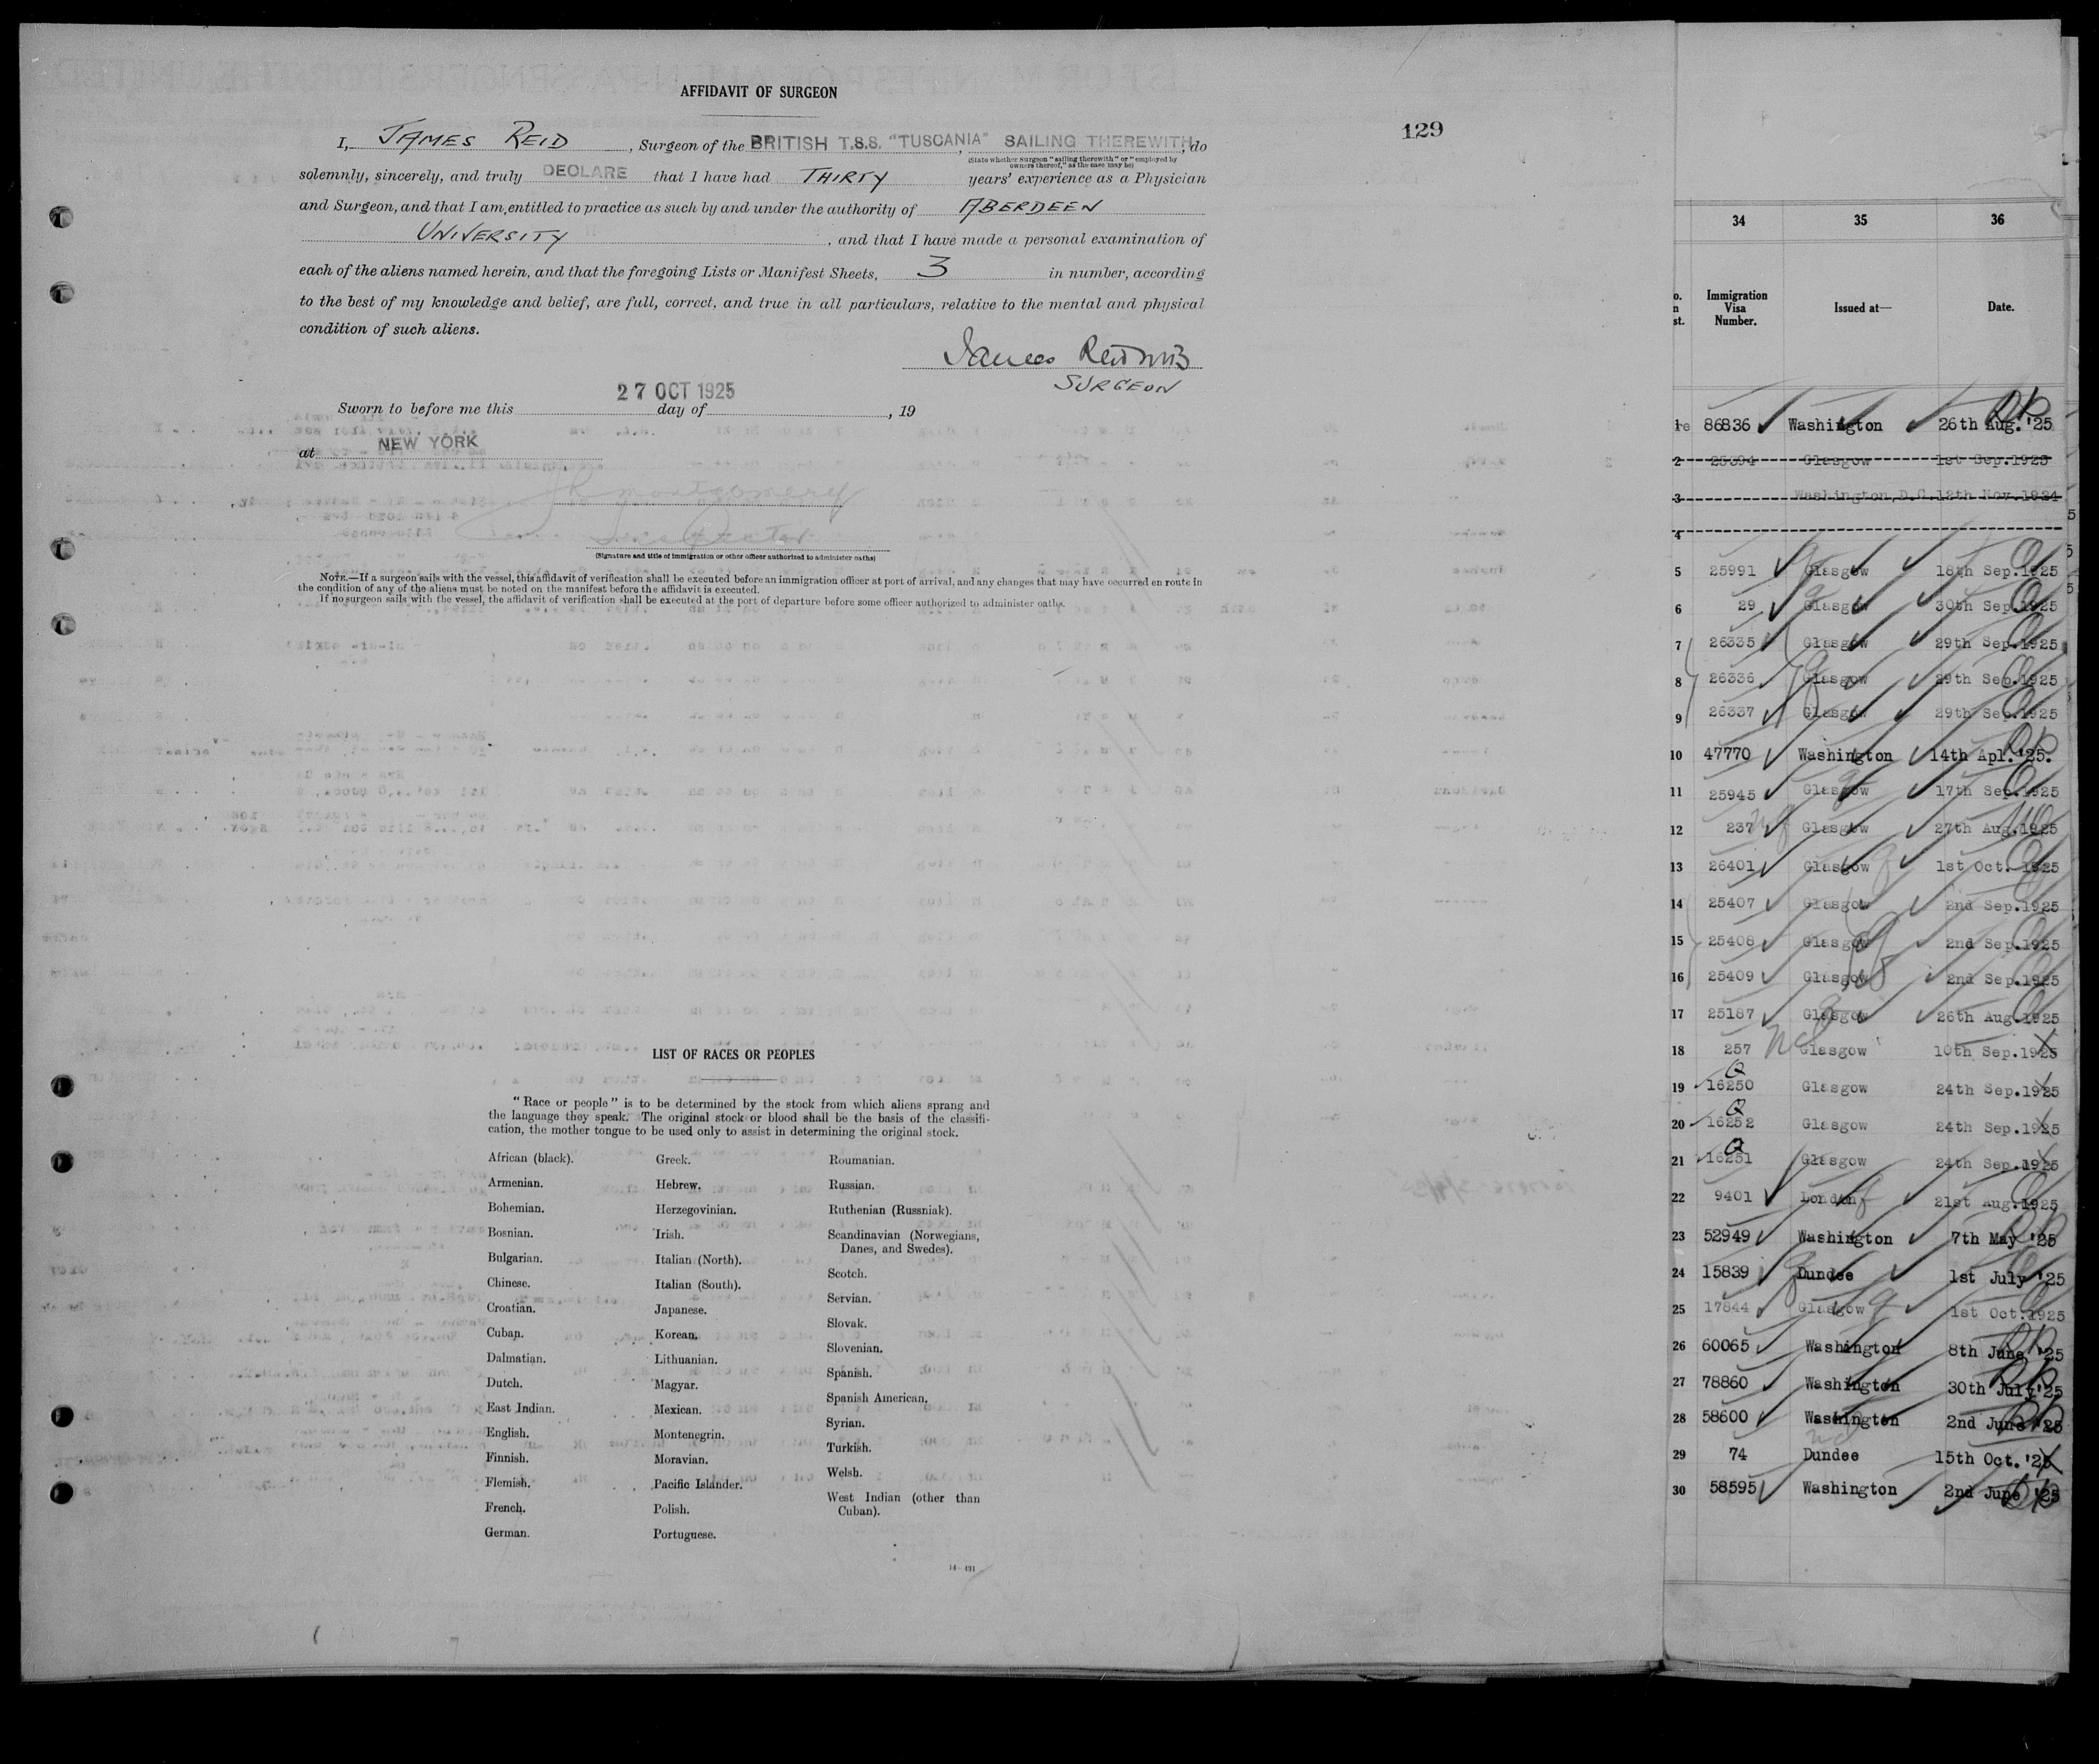 AFFIDAVIT OF SURGEON
129
I, JAMES REID, Surgeon of the BRITISH T.S.S. "TUSCANIA", SAILING THEREWITH, do
(State whether Surgeon "sailing therewith" or "employed by
owners thereof," as the case may be)
solemnly, sincerely, and truly DECLARE that I have had THIRTY years' experience as a Physician
and Surgeon, and that I am entitled to practice as such by and under the authority of ABERDEEN
UNIVERSITY, and that I have made a personal examination of
each of the aliens named herein, and that the foregoing Lists or Manifest Sheets, 3 in number, according
to the best of my knowledge and belief, are full, correct, and true in all particulars, relative to the mental and physical
condition of such aliens.
James Reid MB
SURGEON
27 OCT 1925
Sworn to before me this day of , 19
at NEW YORK
(Signature and title of immigration or other officer authorized to administer oaths)
NOTE.—If a surgeon sails with the vessel, this affidavit of verification shall be executed before an immigration officer at port of arrival, and any changes that may have occurred en route in
the condition of any of the aliens must be noted on the manifest before the affidavit is executed.
If no surgeon sails with the vessel, the affidavit of verification shall be executed at the port of departure before some officer authorized to administer oaths.
LIST OF RACES OR PEOPLES
"Race or people" is to be determined by the stock from which aliens sprang and
the language they speak. The original stock or blood shall be the basis of the classifi-
cation, the mother tongue to be used only to assist in determining the original stock.
African (black).
Armenian.
Bohemian.
Bosnian.
Bulgarian.
Chinese.
Croatian.
Cuban.
Dalmatian.
Dutch.
East Indian.
English.
Finnish.
Flemish.
French.
German.
Greek.
Hebrew.
Herzegovinian.
Irish.
Italian (North).
Italian (South).
Japanese.
Korean.
Lithuanian.
Magyar.
Mexican.
Montenegrin.
Moravian.
Pacific Islander.
Polish.
Portuguese.
Roumanian.
Russian.
Ruthenian (Russniak).
Scandinavian (Norwegians,
Danes, and Swedes).
Scotch.
Servian.
Slovak.
Slovenian.
Spanish.
Spanish American.
Syrian.
Turkish.
Welsh.
West Indian (other than
Cuban).
14—491
34 35 36
Immigration Visa Number. Issued at— Date.
1 86836 Washington 26th Aug. '25
2 25394 Glasgow 1st Sep.1925
3 Washington, D.C. 12th Nov.1924
4
5 25991 Glasgow 18th Sep.1925
6 29 Glasgow 30th Sep.1925
7 26335 Glasgow 29th Sep.1925
8 26336 Glasgow 29th Sep.1925
9 26337 Glasgow 29th Sep.1925
10 47770 Washington 14th Apl. '25.
11 25945 Glasgow 17th Sep.1925
12 237 Glasgow 27th Aug.1925
13 26401 Glasgow 1st Oct. 1925
14 25407 Glasgow 2nd Sep.1925
15 25408 Glasgow 2nd Sep.1925
16 25409 Glasgow 2nd Sep.1925
17 25187 Glasgow 26th Aug.1925
18 257 Glasgow 10th Sep.1925
19 16250 Glasgow 24th Sep.1925
20 16252 Glasgow 24th Sep.1925
21 16251 Glasgow 24th Sep.1925
22 9401 London 21st Aug.1925
23 52949 Washington 7th May '25
24 15839 Dundee 1st July '25
25 17844 Glasgow 1st Oct.1925
26 60065 Washington 8th June '25
27 78860 Washington 30th July '25
28 58600 Washington 2nd June '25
29 74 Dundee 15th Oct. '25
30 58595 Washington 2nd June '25